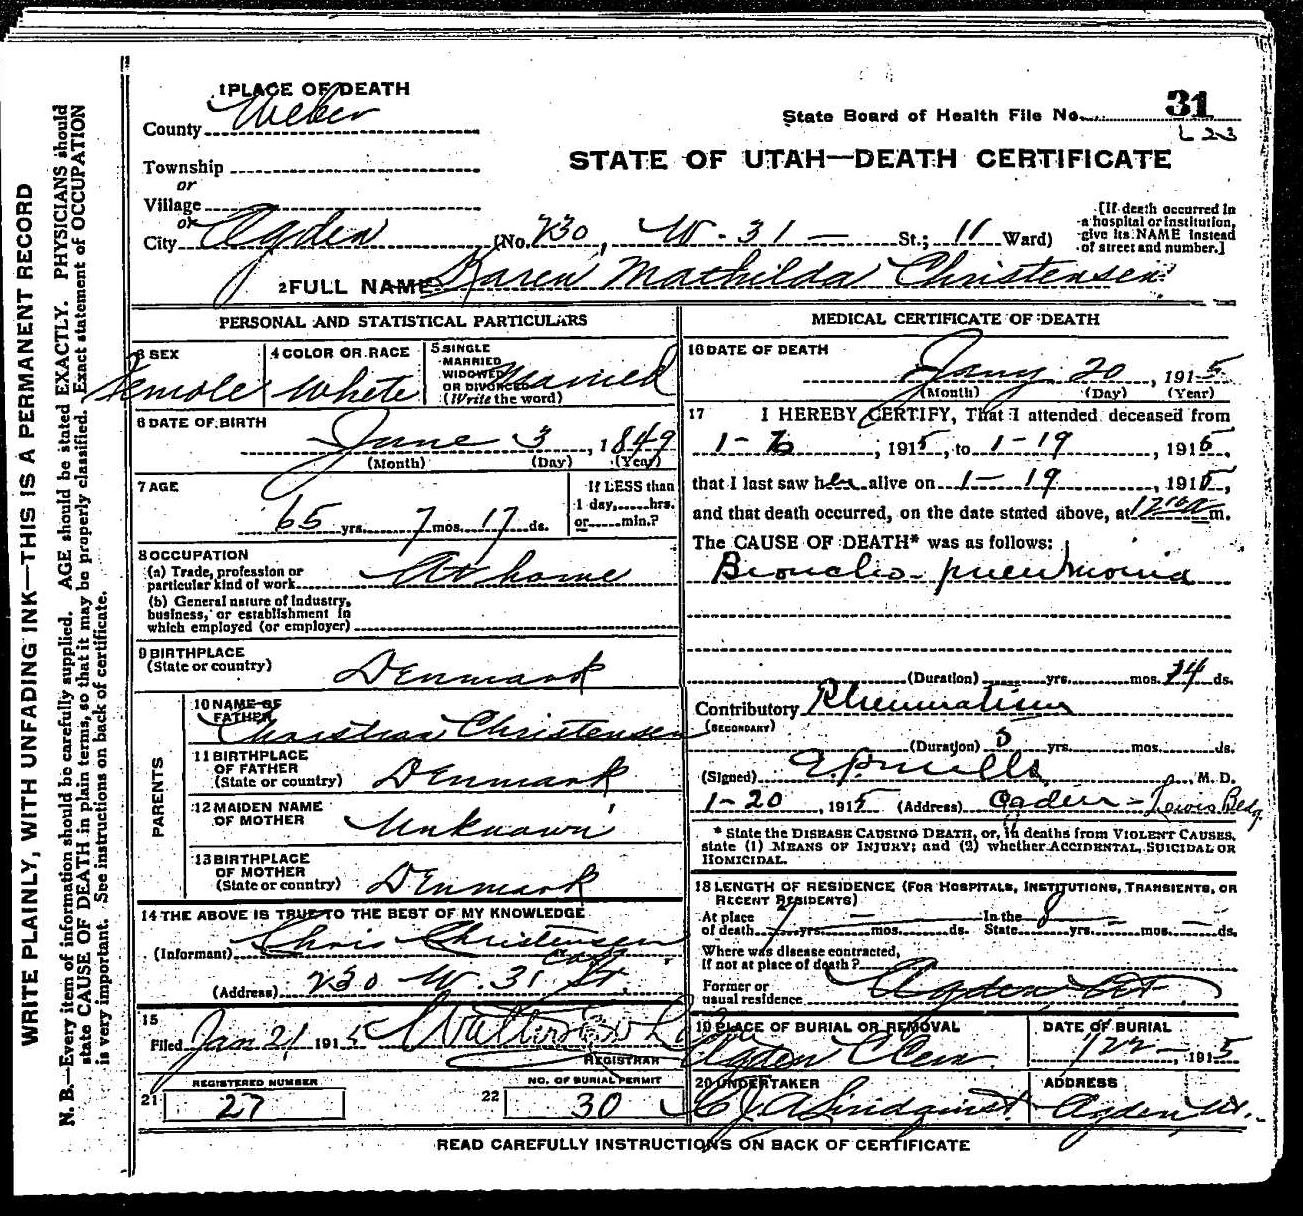 WRITE PLAINLY, WITH UNFADING INK—THIS IS A PERMANENT RECORD
N. B.—Every item of information should be carefully supplied. AGE should be stated EXACTLY. PHYSICIANS should
state CAUSE OF DEATH in plain terms, so that it may be properly classified. Exact statement of OCCUPATION
is very important. See instructions on back of certificate.
1 PLACE OF DEATH
County Weber
State Board of Health File No. 31
L23
Township
or
STATE OF UTAH—DEATH CERTIFICATE
Village
or
City Ogden (No. 230, W. 31 — St.; 11 Ward)
[If death occurred in
a hospital or institution,
give its NAME instead
of street and number.]
2 FULL NAME Karen Mathilda Christensen
PERSONAL AND STATISTICAL PARTICULARS
3 SEX
Female
4 COLOR OR RACE
White
5 SINGLE
MARRIED
WIDOWED
OR DIVORCED
(Write the word)
Married
6 DATE OF BIRTH
June 3, 1849
(Month) (Day) (Year)
7 AGE
65 yrs. 7 mos. 17 ds.
If LESS than
1 day,......hrs.
or......min.?
8 OCCUPATION
(a) Trade, profession or
particular kind of work At home
(b) General nature of industry,
business, or establishment in
which employed (or employer)
9 BIRTHPLACE
(State or country) Denmark
PARENTS
10 NAME OF
FATHER Christian Christensen
11 BIRTHPLACE
OF FATHER
(State or country) Denmark
12 MAIDEN NAME
OF MOTHER Unknown
13 BIRTHPLACE
OF MOTHER
(State or country) Denmark
14 THE ABOVE IS TRUE TO THE BEST OF MY KNOWLEDGE
(Informant) Chris Christensen
(Address) 230 W. 31 St.
15
Filed Jan 21 1915
REGISTRAR
REGISTERED NUMBER
21 27
NO. OF BURIAL PERMIT
22 30
MEDICAL CERTIFICATE OF DEATH
16 DATE OF DEATH
Jany 20, 1915
(Month) (Day) (Year)
17 I HEREBY CERTIFY, That I attended deceased from
1-6, 1915, to 1-19, 1915,
that I last saw her alive on 1-19, 1915,
and that death occurred, on the date stated above, at m.
The CAUSE OF DEATH* was as follows:
Broncho-pneumonia
(Duration) yrs. mos. 14 ds.
Contributory Rheumatism
(SECONDARY)
(Duration) 5 yrs. mos. ds.
(Signed) E.P. Mills, M. D.
1-20, 1915 (Address) Ogden - Lewis Bldg.
* State the DISEASE CAUSING DEATH, or, in deaths from VIOLENT CAUSES,
state (1) MEANS OF INJURY; and (2) whether ACCIDENTAL, SUICIDAL OR
HOMICIDAL.
18 LENGTH OF RESIDENCE (FOR HOSPITALS, INSTITUTIONS, TRANSIENTS, OR
RECENT RESIDENTS)
At place
of death 7 yrs. — mos. ds. In the
State 8 yrs. — mos. — ds.
Where was disease contracted,
if not at place of death?
Former or
usual residence Ogden Ut
19 PLACE OF BURIAL OR REMOVAL
Ogden Cem
DATE OF BURIAL
1/22—, 1915
20 UNDERTAKER
C J A Lindquist
ADDRESS
Ogden, Ut.
READ CAREFULLY INSTRUCTIONS ON BACK OF CERTIFICATE